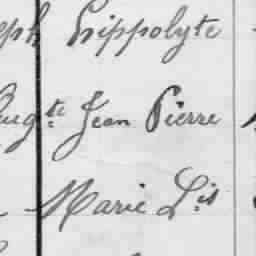 eph Hippolyte
Augte Jean Pierre
Marie Lis